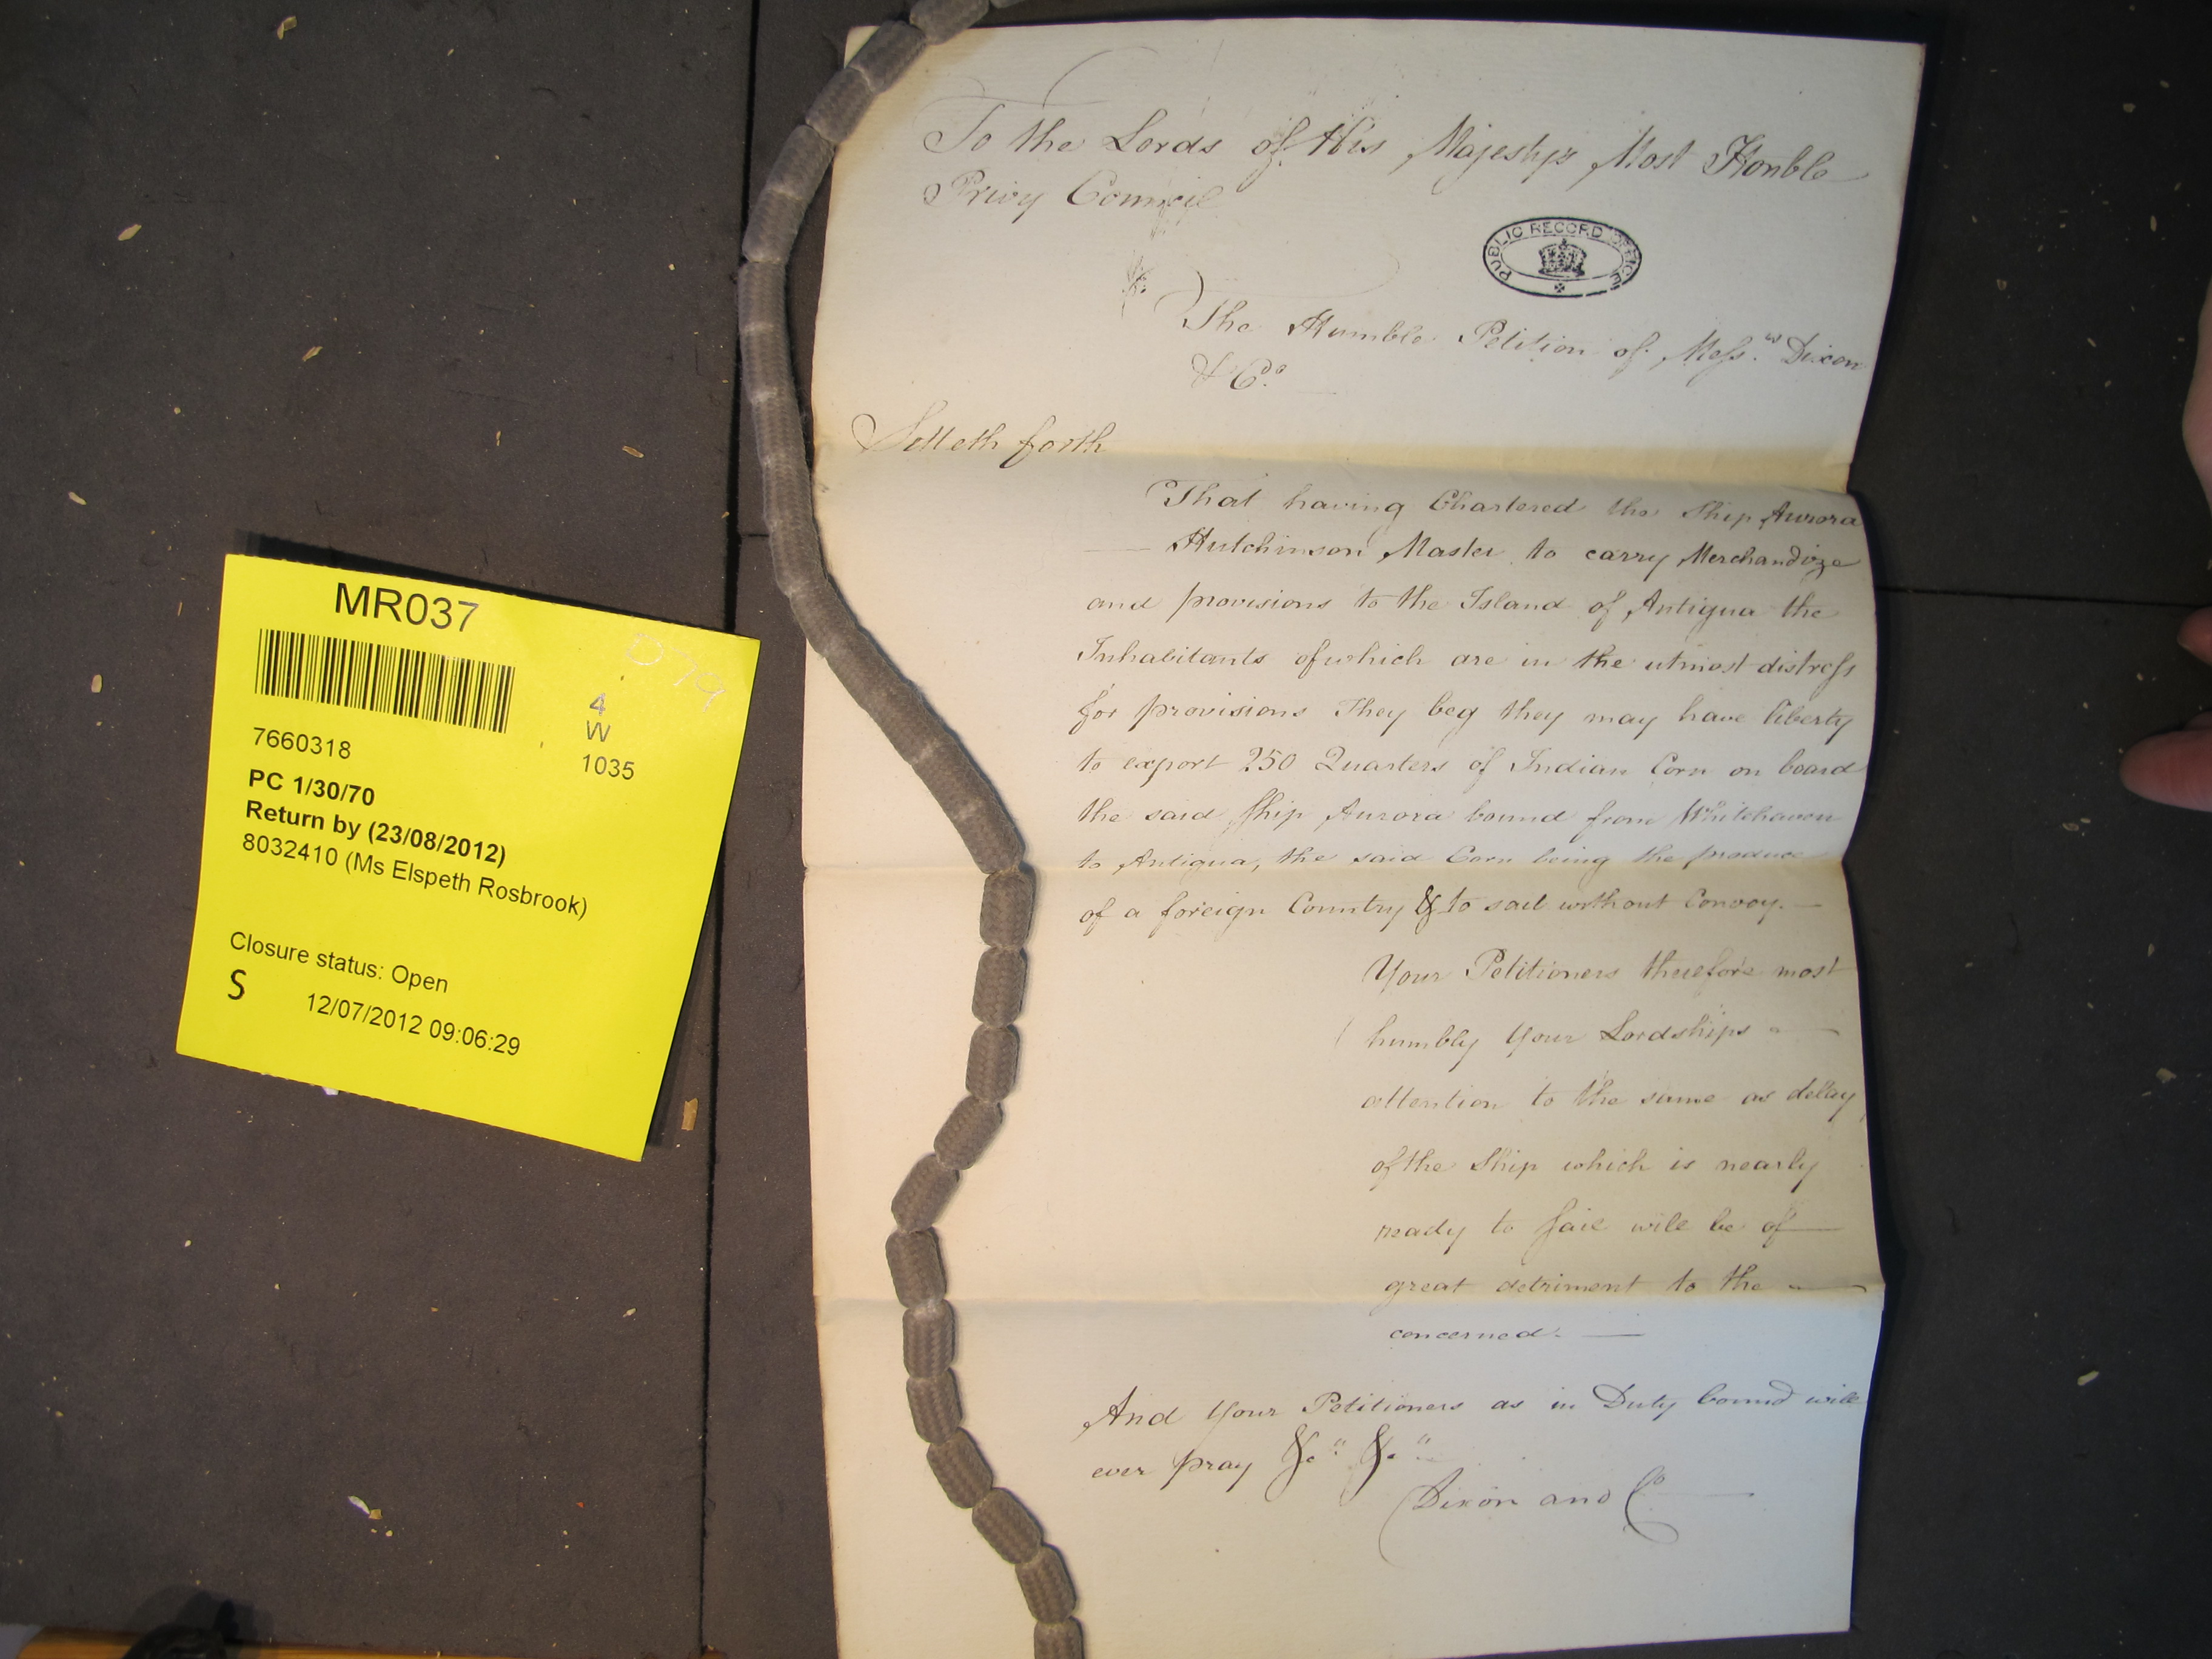 To the Lords of His Majestys Most Honble
Privy Council
PUBLIC RECORD OFFICE
The Humble Petition of Mess.rs Dixon
& Co.
Setteth forth
That having Chartered the Ship Aurora
— Hutchinson Master to carry Merchandize
and provisions to the Island of Antigua the
Inhabitants of which are in the utmost distress
for provisions They beg they may have liberty
to export 250 Quarters of Indian Corn on board
the said Ship Aurora bound from Whitehaven
to Antigua, the said Corn being the produce
of a foreign Country & to sail without Convoy. —
Your Petitioners therefore most
humbly Your Lordships —
attention to the same as delay
of the Ship which is nearly
ready to sail will be of —
great detriment to the —
concerned. —
And Your Petitioners as in Duty bound will
ever pray &c. &c.
Dixon and Co
MR037
D779
4
W
1035
7660318
PC 1/30/70
Return by (23/08/2012)
8032410 (Ms Elspeth Rosbrook)
Closure status: Open
S
12/07/2012 09:06:29